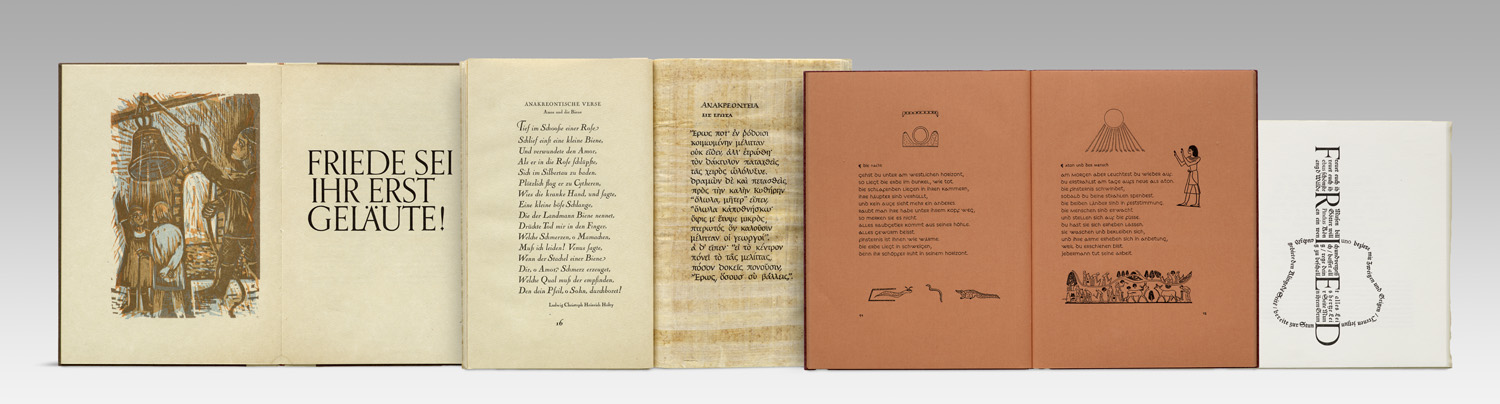 FRIEDE SEI
IHR ERST
GELÄUTE!
ANAKREONTISCHE VERSE
Amor und die Biene
Tief im Schooße einer Rose
Schlief einst eine kleine Biene,
Und verwundete den Amor,
Als er in die Rose schlüpfte,
Sich im Silbertau zu baden.
Plötzlich flog er zu Cytheren,
Wies die kranke Hand, und sagte,
Eine kleine böse Schlange,
Die der Landmann Biene nennet,
Drückte Tod mir in den Finger.
Welche Schmerzen, o Mamachen,
Muß ich leiden! Venus sagte,
Wenn der Stachel einer Biene
Dir, o Amor! Schmerz erzeuget,
Welche Qual muß der empfinden,
Den dein Pfeil, o Sohn, durchboret!
Ludwig Christoph Heinrich Hölty
16
ΑΝΑΚΡΕΟΝΤΕΙΑ
ΕΙΣ ΕΡΩΤΑ
Ἔρως ποτ' ἐν ῥόδοισι
κοιμωμένην μέλιτταν
οὐκ εἶδεν, ἀλλ' ἐτρώθη·
τὸν δάκτυλον παταχθεὶς
τᾶς χειρὸς ὠλόλυξε.
δραμὼν δὲ καὶ πετασθεὶς
πρὸς τὴν καλὴν Κυθήρην
"ὄλωλα, μῆτερ" εἶπεν,
"ὄλωλα κἀποθνήσκω·
ὄφις μ' ἔτυψε μικρὸς
πτερωτός, ὃν καλοῦσιν
μέλιτταν οἱ γεωργοί".
ἃ δ' εἶπεν· "εἰ τὸ κέντρον
πονεῖ τὸ τᾶς μελίττας,
πόσον δοκεῖς πονοῦσιν,
Ἔρως, ὅσους σὺ βάλλεις;"
die nacht
gehst du unter am westlichen horizont,
so liegt die erde im dunkel, wie tot.
die schlafenden liegen in ihren kammern,
ihre häupter sind verhüllt,
und kein auge sieht mehr ein anderes.
raubt man ihre habe unter ihrem kopf weg,
so merken sie es nicht.
alles raubgetier kommt aus seiner höhle.
alles gewürm beisst.
finsternis ist ihnen wie wärme.
die erde liegt in schweigen,
denn ihr schöpfer ruht in seinem horizont.
aton und der mensch
am morgen aber leuchtest du wieder auf.
du erstrahlst am tage aufs neue als aton.
die finsternis schwindet,
sobald du deine strahlen spendest.
die beiden länder sind in feststimmung.
die menschen sind erwacht
und stellen sich auf die füsse.
du hast sie sich erheben lassen.
sie waschen und bekleiden sich,
und ihre arme erheben sich in anbetung,
weil du erschienen bist.
jedermann tut seine arbeit.
FRIED